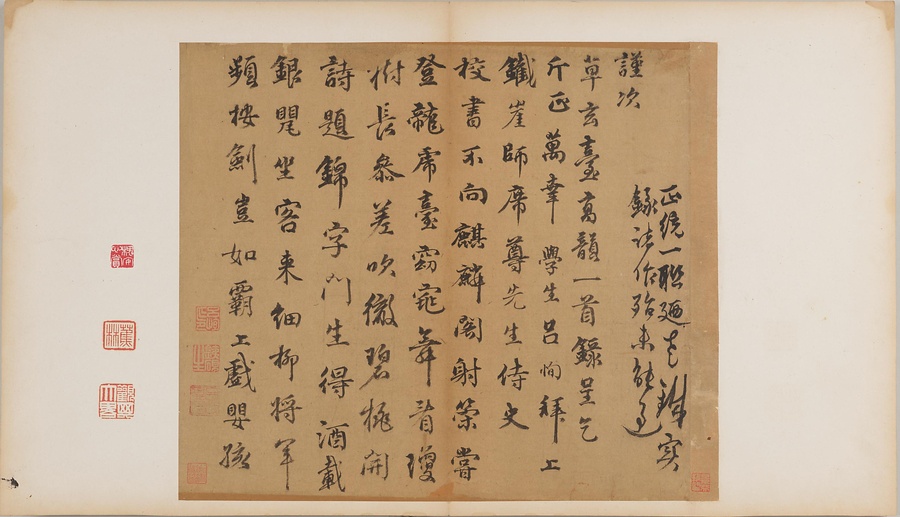 正統一聯廼老鐵實
錄諸作殆未能過
謹次
草玄臺高韻一首錄呈乞
斤正萬幸 學生呂恂拜上
鐵崖師席尊先生侍史
校書不向麒麟閣射策嘗
登龍虎臺窈窕舞看瓊
樹長參差吹徹碧桃開
詩題錦字門生得酒載
銀 坐客來細柳將軍
頻按劍豈如霸上戲嬰孩
蕉林